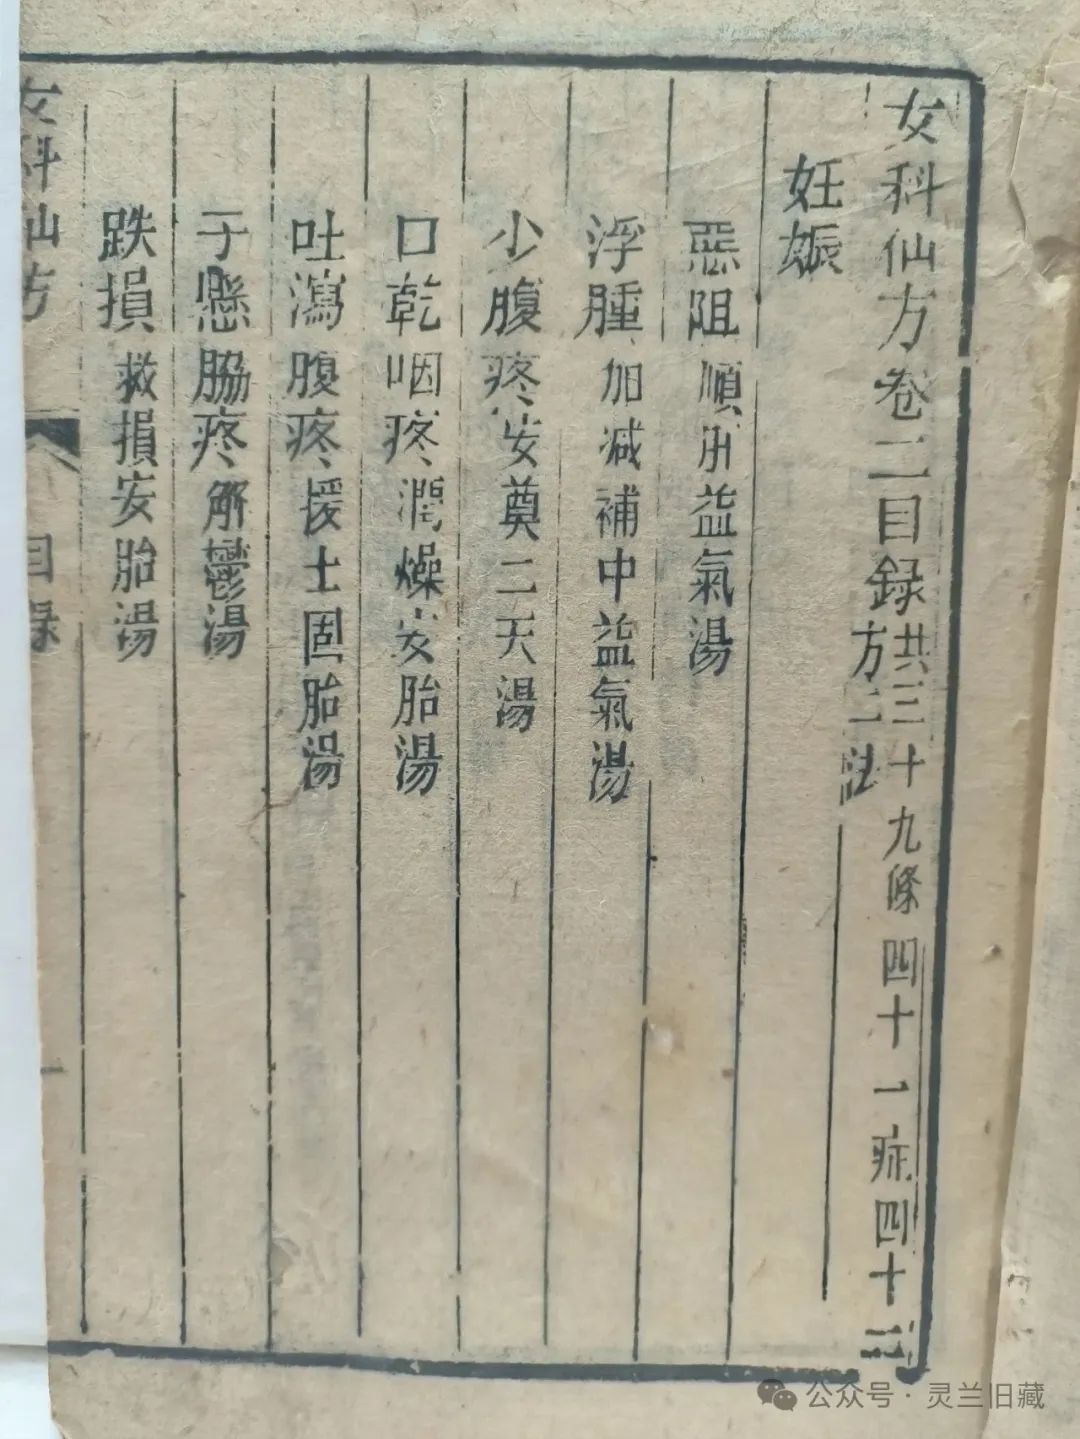 女科仙方卷二目録共三十九條四十一症四十二
方二法
妊娠
惡阻順肝益氣湯
浮腫加减補中益氣湯
少腹疼安奠二天湯
口乾咽疼潤燥安胎湯
吐瀉腹疼援土固胎湯
子懸脇疼解鬱湯
跌損救損安胎湯
女科仙方
目録
一
公众号·灵兰旧藏